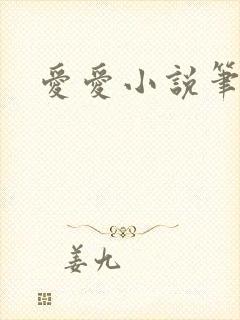 愛愛小說筆
姜九